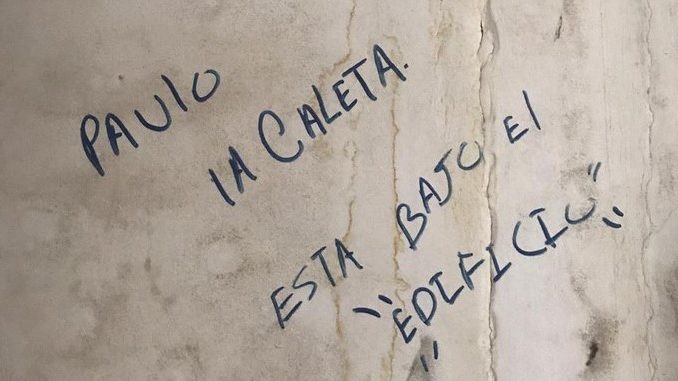 PAULO
lA CALETA.
ESTA BAJO El
"EDIFICIO"